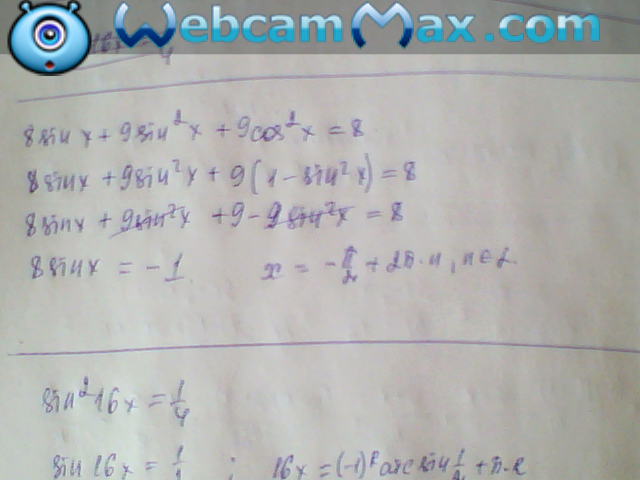 WebcamMax.com
16x = 1/4
8 sin x + 9 sin²x + 9cos²x = 8
8 sin x + 9 sin²x + 9(1 - sin²x) = 8
8 sin x + 9 sin²x + 9 - 9 sin²x = 8
8 sin x = -1    x = -π/2 + 2π·n, n∈Z.
sin²16x = 1/4
sin 16x = ; 16x = (-1)^k arcsin + π·k